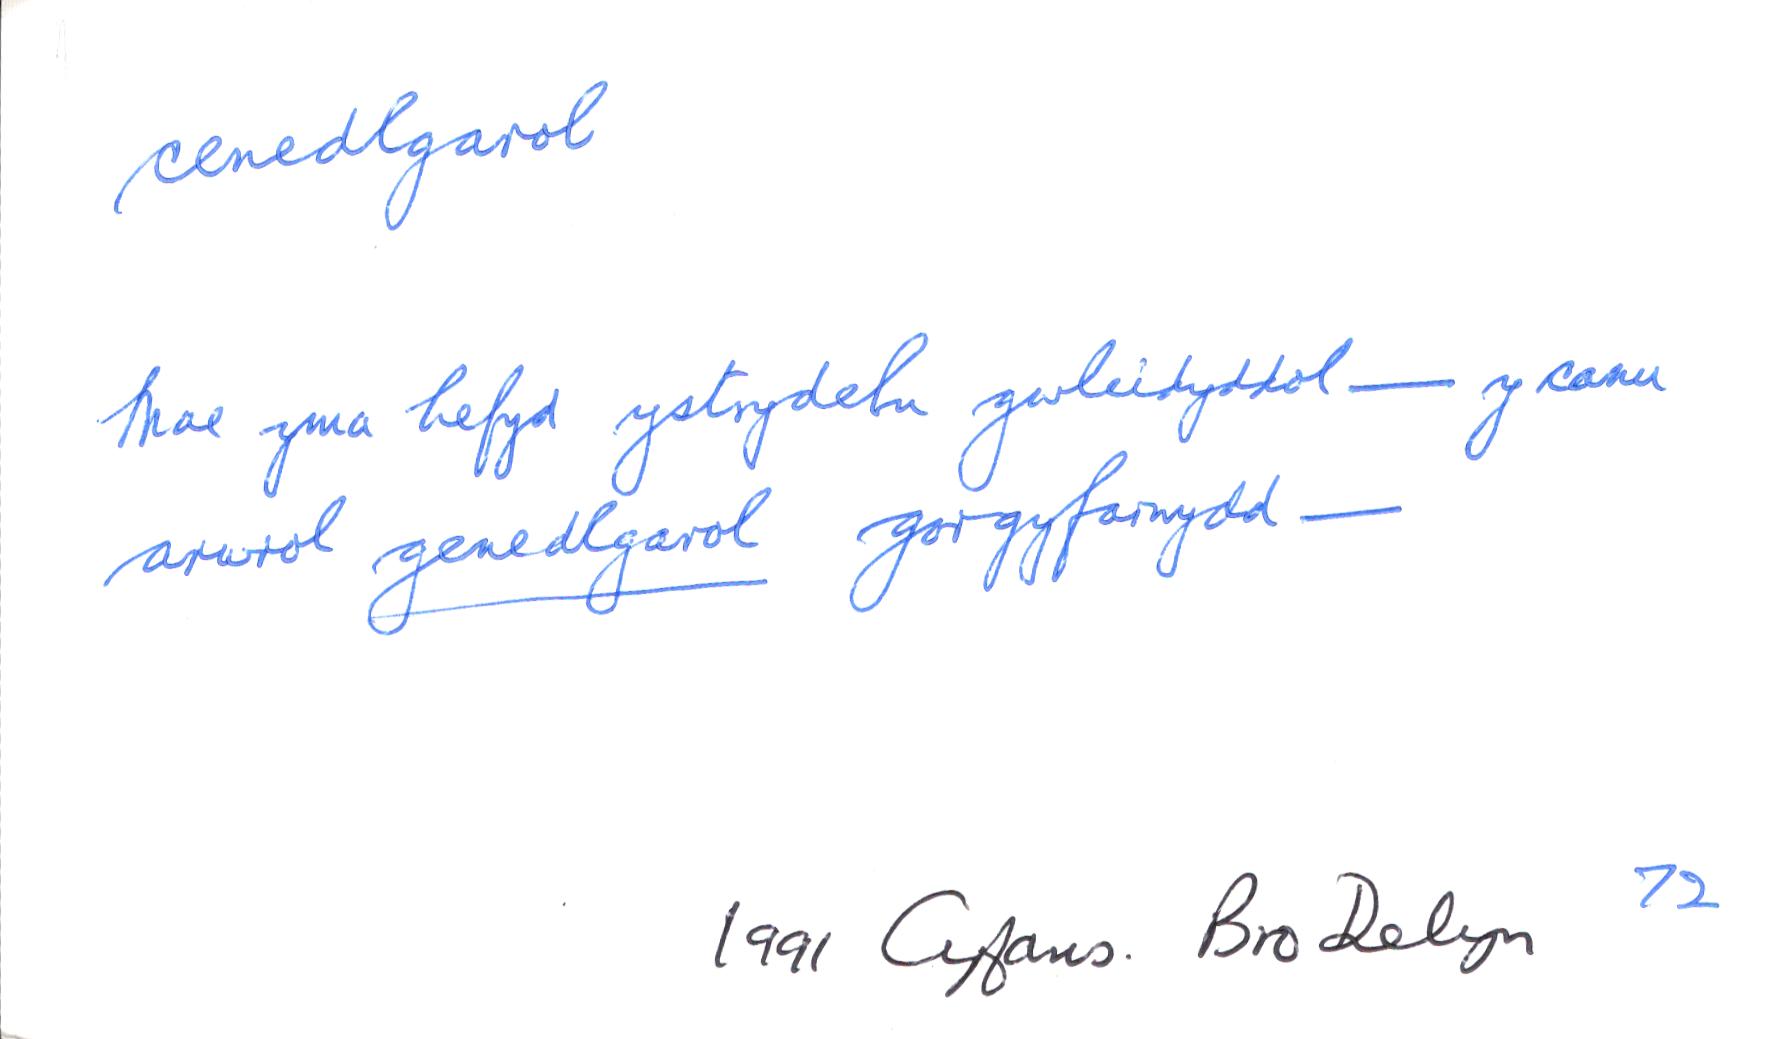 cenedlgarol
Mae yma hefyd ystrydebu gwleidyddol — y canu
arwrol genedlgarol gorgyfarwydd —
72
1991 Cyfans. Bro Delyn